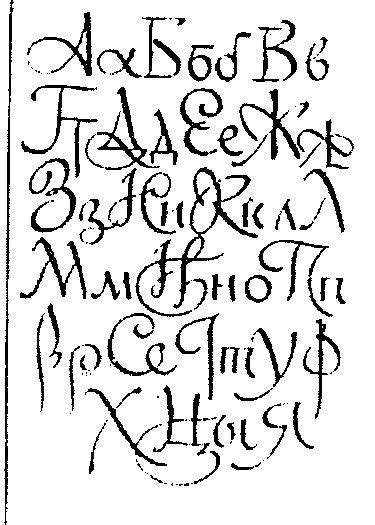 Аа Ббб Вв
Гг Дд Ее Жж
Зз Ии Кк лЛ
Мм Нн о Пп
Рр Се Тт У Ф
Х Ц ы Я